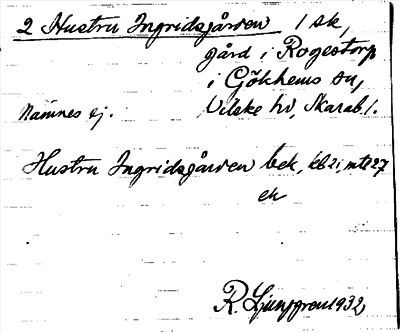 2 Hustru Ingridsgården 1 sk,
gård i Rogestorp
i Gökhems sn,
Nämnes ej. Vilske hd, Skarab. l.
Hustru Ingridsgården bek, kb 21, mtl 27
ek
R. Ljunggren 1932,